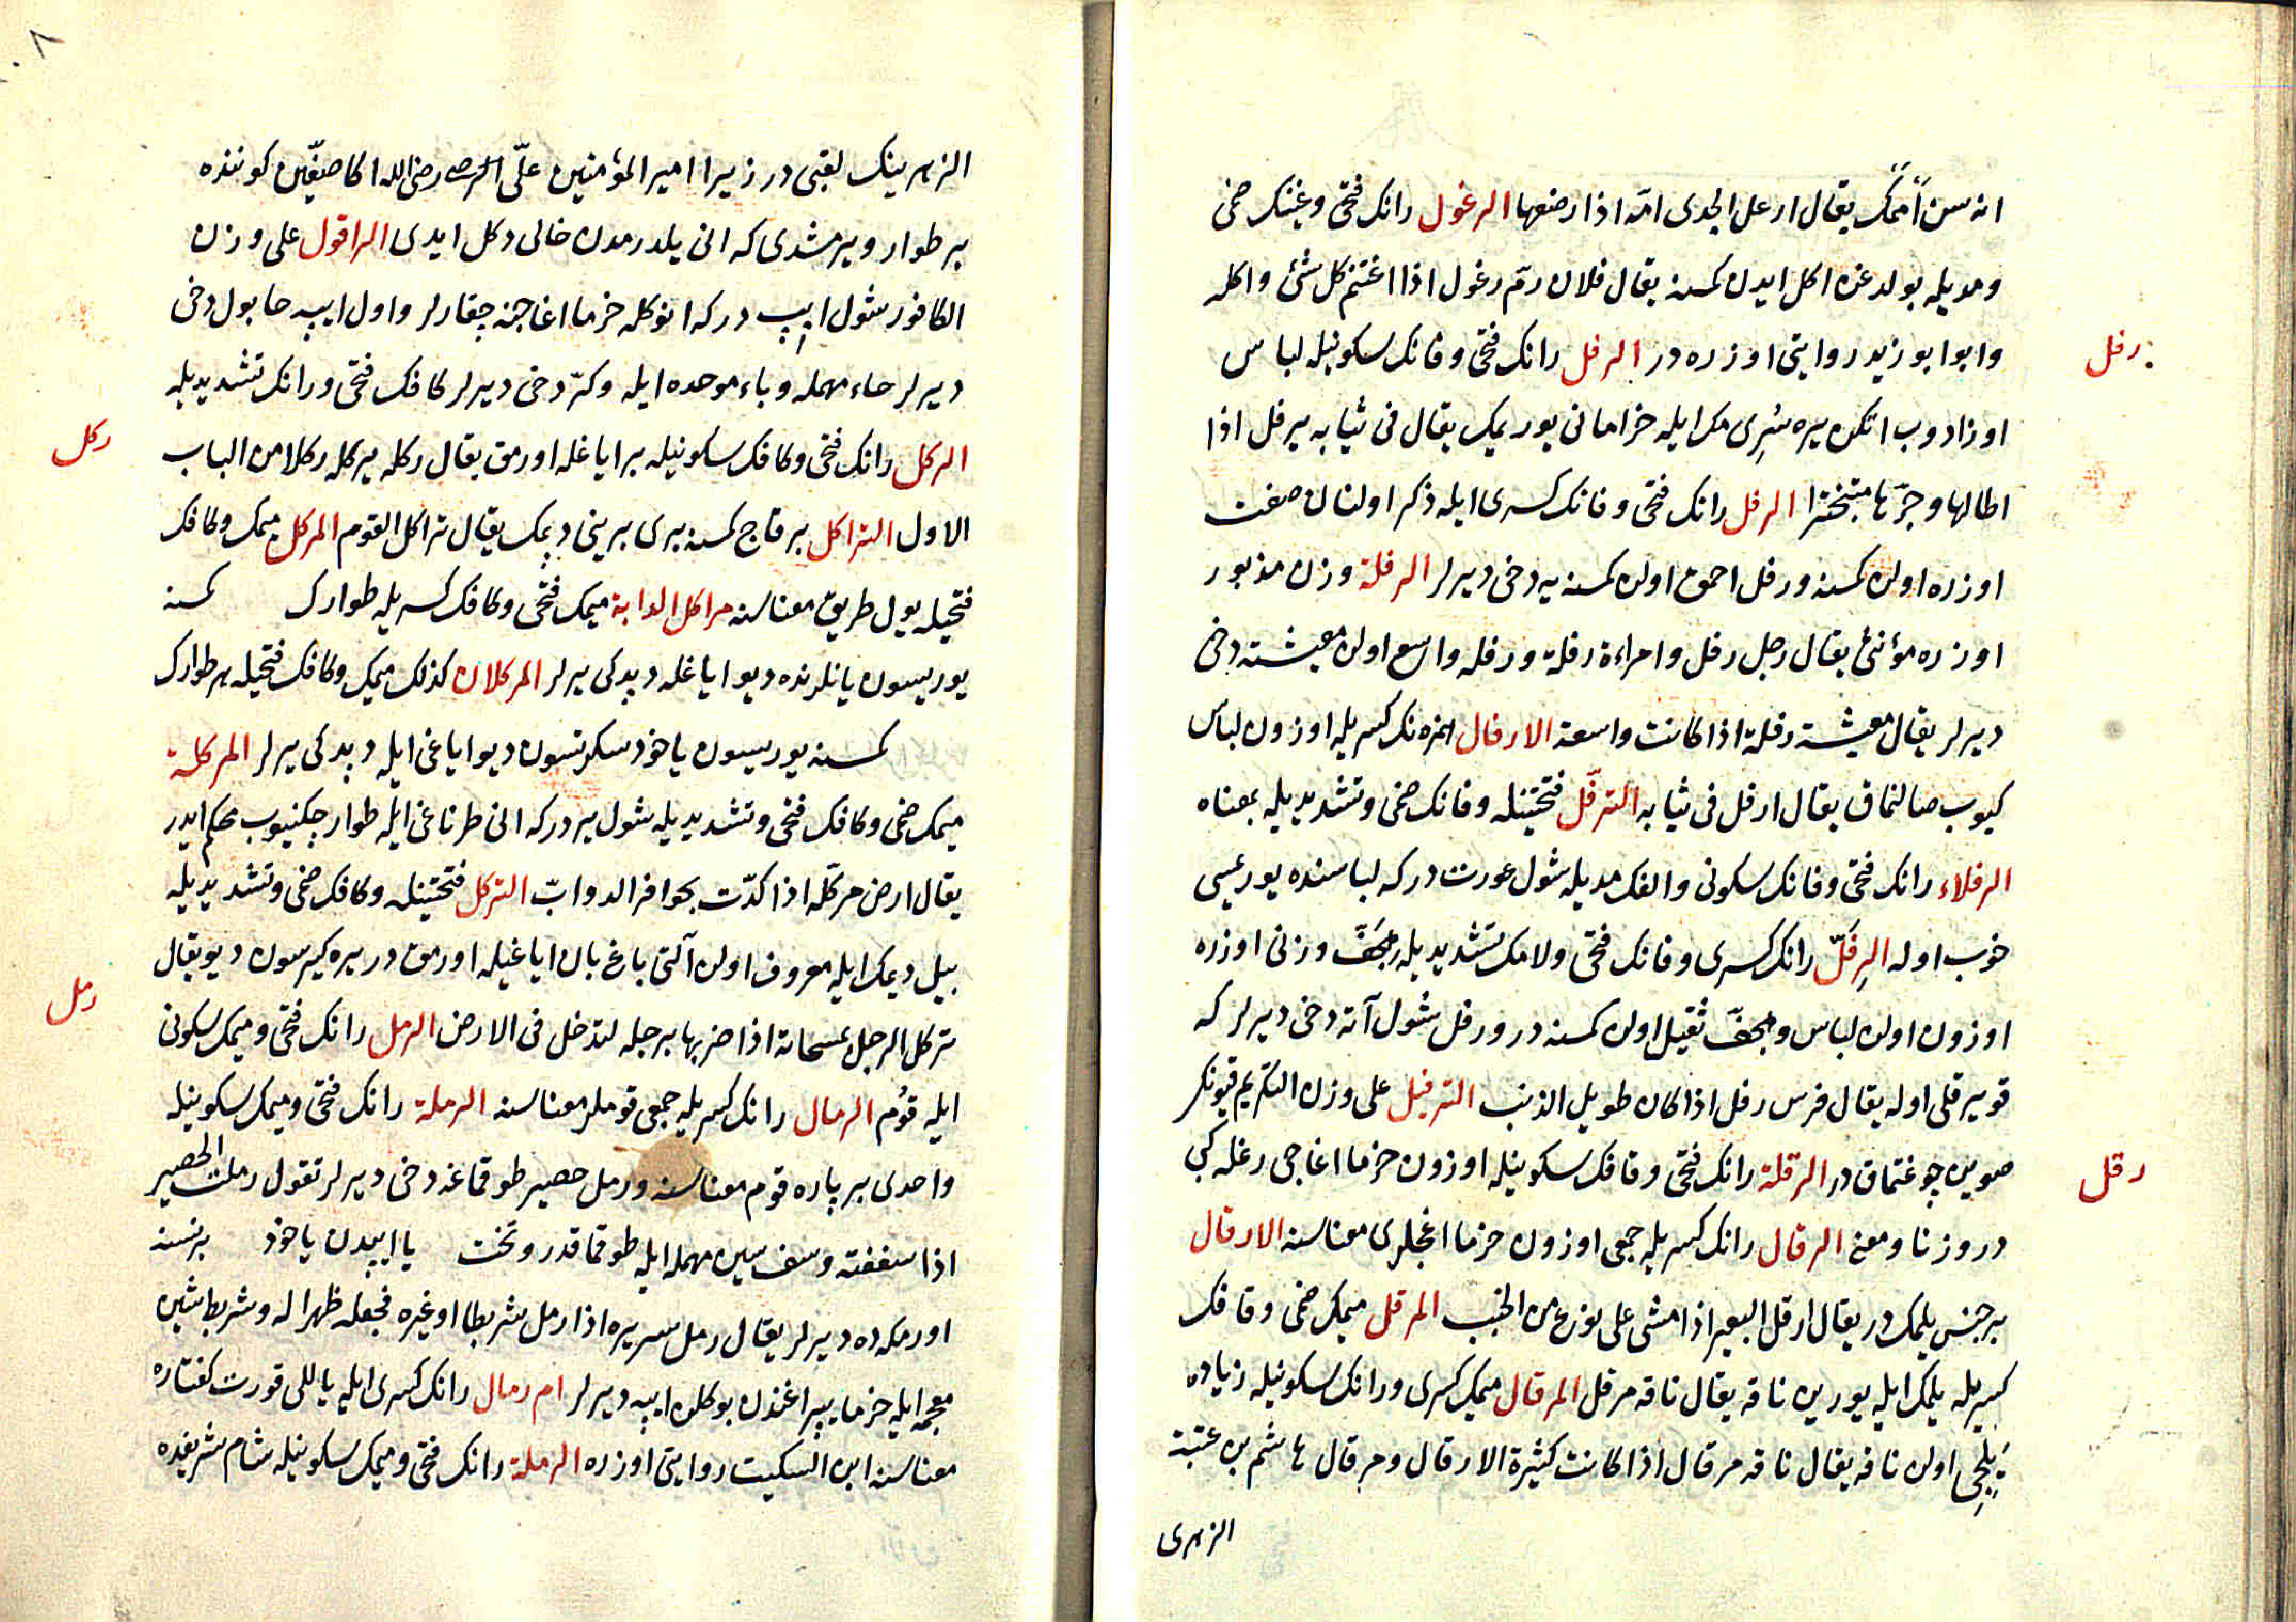 انه سن اممك يقال ارعل الجدى امّه اذا رضعها الرغول رانك فتحى وغينك ضمى
ومديله بولدغن اكل ايدن كمسنه يقال فلان رمّ رغول اذا اغتنم كل شئ واكله
رفل
وابو ابو زيد روايتى اوزره در الرفل رانك فتحى وفانك سكونيله لباس
اوزادوب اتكن يره سُرِى مك ايله خرامانى يوريمك يقال فى ثيابه يرفل اذا
اطالها وجرّها متبخترا الرفل رانك فتحى وفانك كسرى ايله ذكر اولنان صفت
اوزره اولن كمسنه ورفل احمق اولن كمسنه يه دخى ديرلر الرفلة وزن مذبور
اوزره مؤنثى يقال رجل رفل وامراءة رفلة ورفله واسع اولن معيشته دخى
ديرلر يقال معيشة رفلة اذا كانت واسعة الارفال همزه نك كسريله اوزون لباس
كيوب صالنماق يقال ارفل فى ثيابه الترفّل فتحتينله وفانك ضمى وتشديديله بمعناه
الرفلاء رانك فتحى وفانك سكونى والفك مديله شول عورت دركه لباسنده يوريميسى
خوب اوله الرِفَلّ رانك كسرى وفانك فتحى ولامك تشديديله هجَفّ وزنى اوزره
اوزون اولن لباس وهجفّ ثقيل اولن كمسنه در ورفل شول آته دخى ديرلر كه
قويرقلى اوله يقال فرس رفل اذا كان طويل الذنب الترفيل على وزن التكريم قيونك
رقل
صوين چوغتماق در الرقلة رانك فتحى وقافك سكونيله اوزون خرما اغاجى رغله كبى
در وزنا ومعنى الرقال رانك كسريله جمعى اوزون خرما اغجلرى معناسنه الارقال
بر جنس يلمك در يقال ارقل البعير اذا مشى على نوع من الخبب المرقل ميمك ضمى وقافك
كسريله يلمك ايله يورين ناقه يقال ناقه مرقل المرقال ميمك كسرى ورانك سكونيله زياده
يلجى اولن ناقه يقال ناقه مرقال اذا كانت كثيرة الارقال ومرقال هاشم بن عتبة
الزهرى
الزهرينك لقبى در زيرا امير المؤمنين علىّ رضى الله اكا صفّين كوننده
بر طوار ويرمشدى كه انى يلدرمدن خالى دكل ايدى الراقول على وزن
الكافور شول ايپ در كه انوكله خرما اغاجنه چقارلر واول ايپه حابول دخى
ديرلر حاء مهمله وباء موحده ايله وكرّ دخى ديرلر كافك فتحى ورانك تشديديله
ركل
الركل رانك فتحى وكافك سكونيله بر اياغله اورمق يقال ركله يركله ركلا من الباب
الاول التراكل بر قاج كمسنه برى برينى دپمك يقال تراكل القوم المركل ميمك وكافك
فتحيله يول طريق معناسنه مراكل الدابة ميمك فتحى وكافك كسريله طوارك كمسنه
يوريسون يانلرنده ديو اياغله دپدكى يرلر المركلان كذلك ميمك وكافك فتحيله بر طوارك
كمسنه يوريسون ياخود سكرتسون ديو اياغى ايله دپدكى يرلر المركلة
ميمك ضمى وكافك فتحى وتشديديله شول ير دركه انى طرناغى ايله طوار چكنيوب محكم ايدر
يقال ارض مركّله اذا كدّت بحوافر الدوابّ التركل فتحتينله وكافك ضمى وتشديديله
بيل ديمك ايله معروف اولن آلتى باغ بان اياغيله اورمق در يره كيرسون ديو يقال
رمل
تركل الرجل بمسحاته اذا ضربها برجله لتدخل فى الارض الرمل رانك فتحى وميمك سكونى
ايله قوُم الرمال رانك كسريله جمعى قوملر معناسنه الرملة رانك فتحى وميمك سكونيله
واحدى بر پاره قوم معناسنه ورمل حصير طوقماغه دخى ديرلر تقول رملت الحصير
اذا سففته وسف سين مهمله ايله طوقماقدر وتخت يا ايپدن ياخود بر نسنه
اورمكه ده ديرلر يقال رمل سريره اذا رمل شريطا اوغيره فجعله ظهرا له وشريط شين
معجمه ايله خرما يپراغندن بوكلن ايپه ديرلر ام رمال رانك كسرى ايله ياللى قورت كفتاره
معناسنه ابن السكيت روايتى اوزره الرملة رانك فتحى وميمك سكونيله شام شريفده